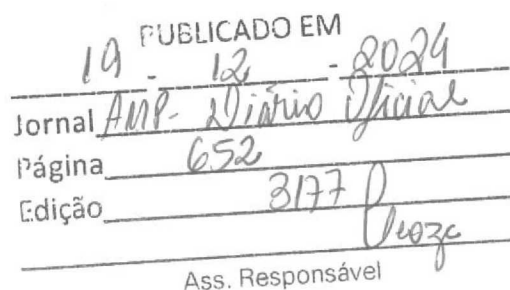 PUBLICADO EM
19 - 12 - 2024
Jornal AMP - Diário Oficial
Página 652
Edição 3177
Ass. Responsável